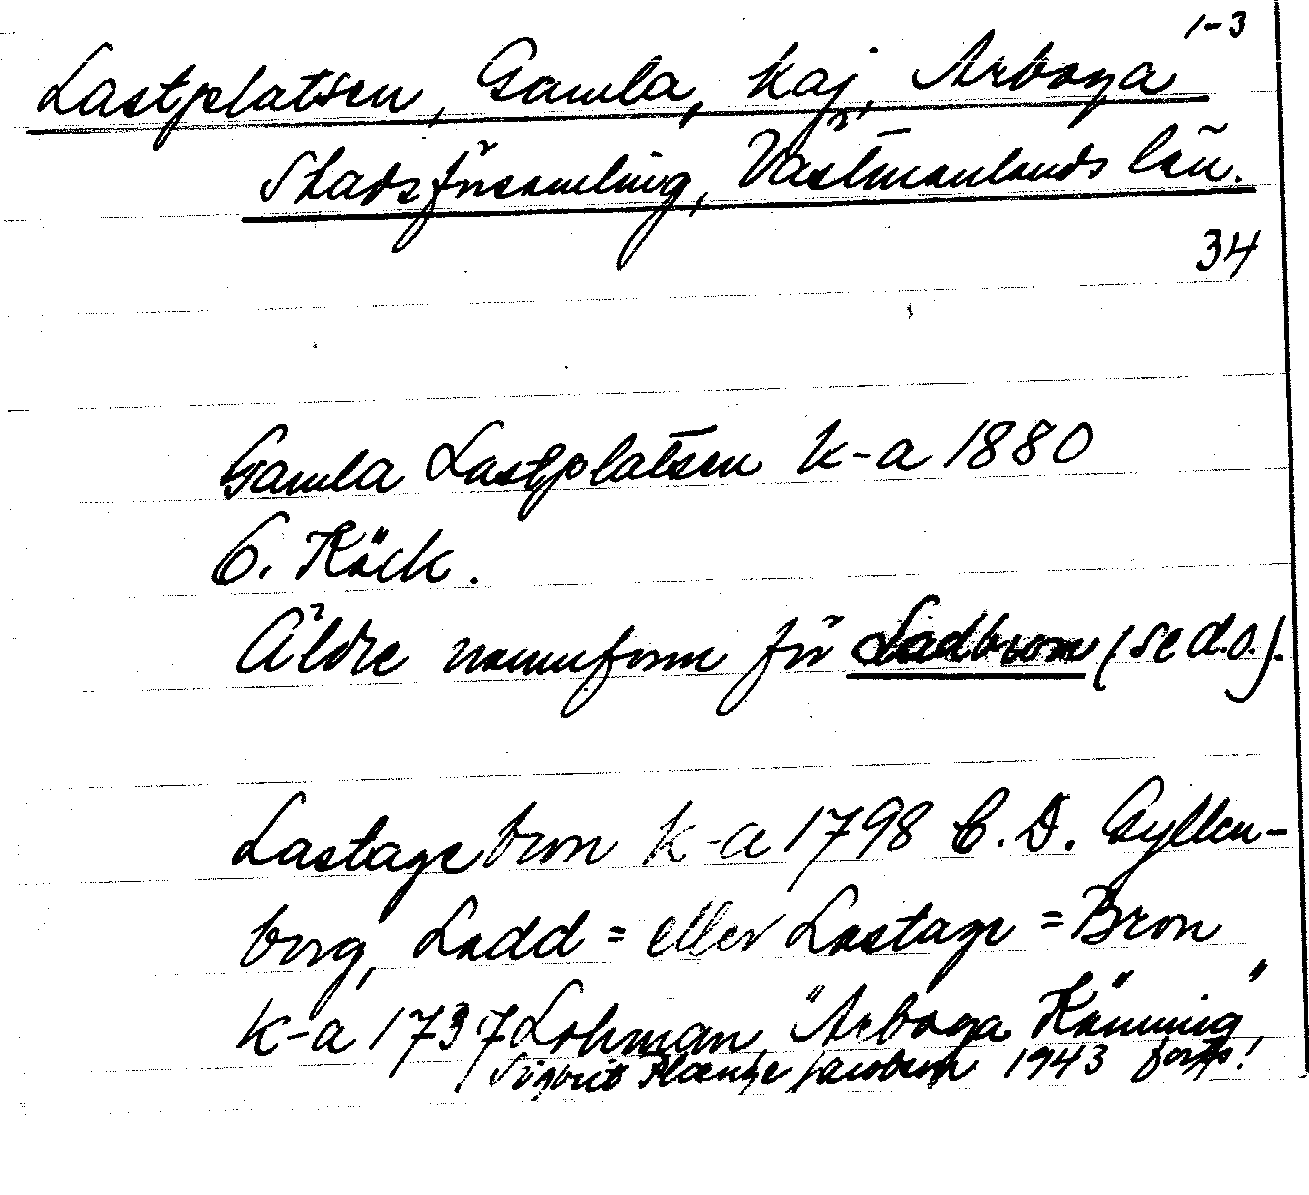 1-3
Lastplatsen, Gamla, kaj, Arboga
Stadsförsamling, Västmanlands län.
34
Gamla Lastplatsen k-a 1880
G. Höök.
Äldre namnform för Ladbron (se d.o.).
Lastagebron k-a 1798 C. D. Gyllen-
borg, Ladd= eller Lastage=Bron
k-a 1737 Lohman, "Arboga Känning"
1943 forts!